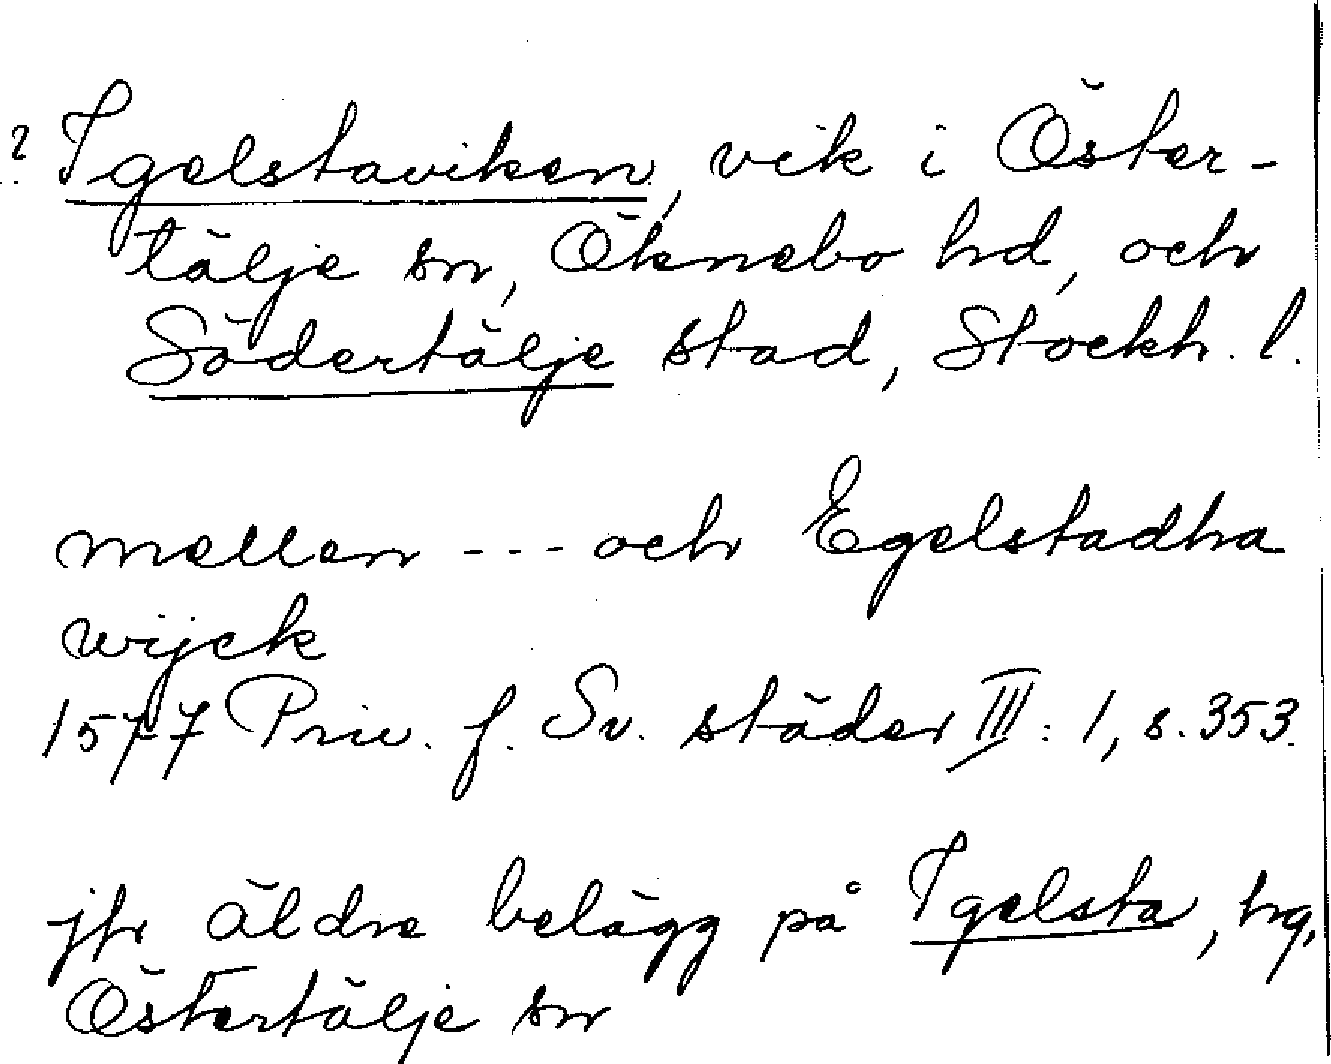 ? Igelstaviken, vik i Öster-
tälje sn, Öknebo hd, och
Södertälje stad, Stockh. l.
mellen --- och Egelstadha
wijck
1577 Priv. f. Sv. städer III: 1, s. 353.
jfr äldre belägg på Igelsta, hg,
Östertälje sn